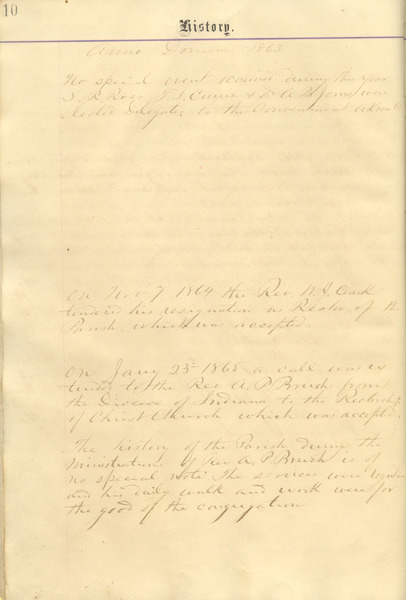 10
History.
Anno Domini 1863
No special event occured during this year
S. R. Ross, T. S. Currie & Dr A. B. Jones were
elected Delegates to the Convention at
On Nov 7 1864 the Rev. W. J. Clark
tendered his resignation as Rector of the
Parish, which was accepted.
On Jany 23d 1865 a call was ex
tended to the Rev A. P. Brush from
the Diocese of Indiana to the Rectorship
of Christ Church which was accepted.
The history of the Parish during the
Ministrations of Rev A. P. Brush is of
no special note. The services were
and his daily walk and work were for
the good of the congregation